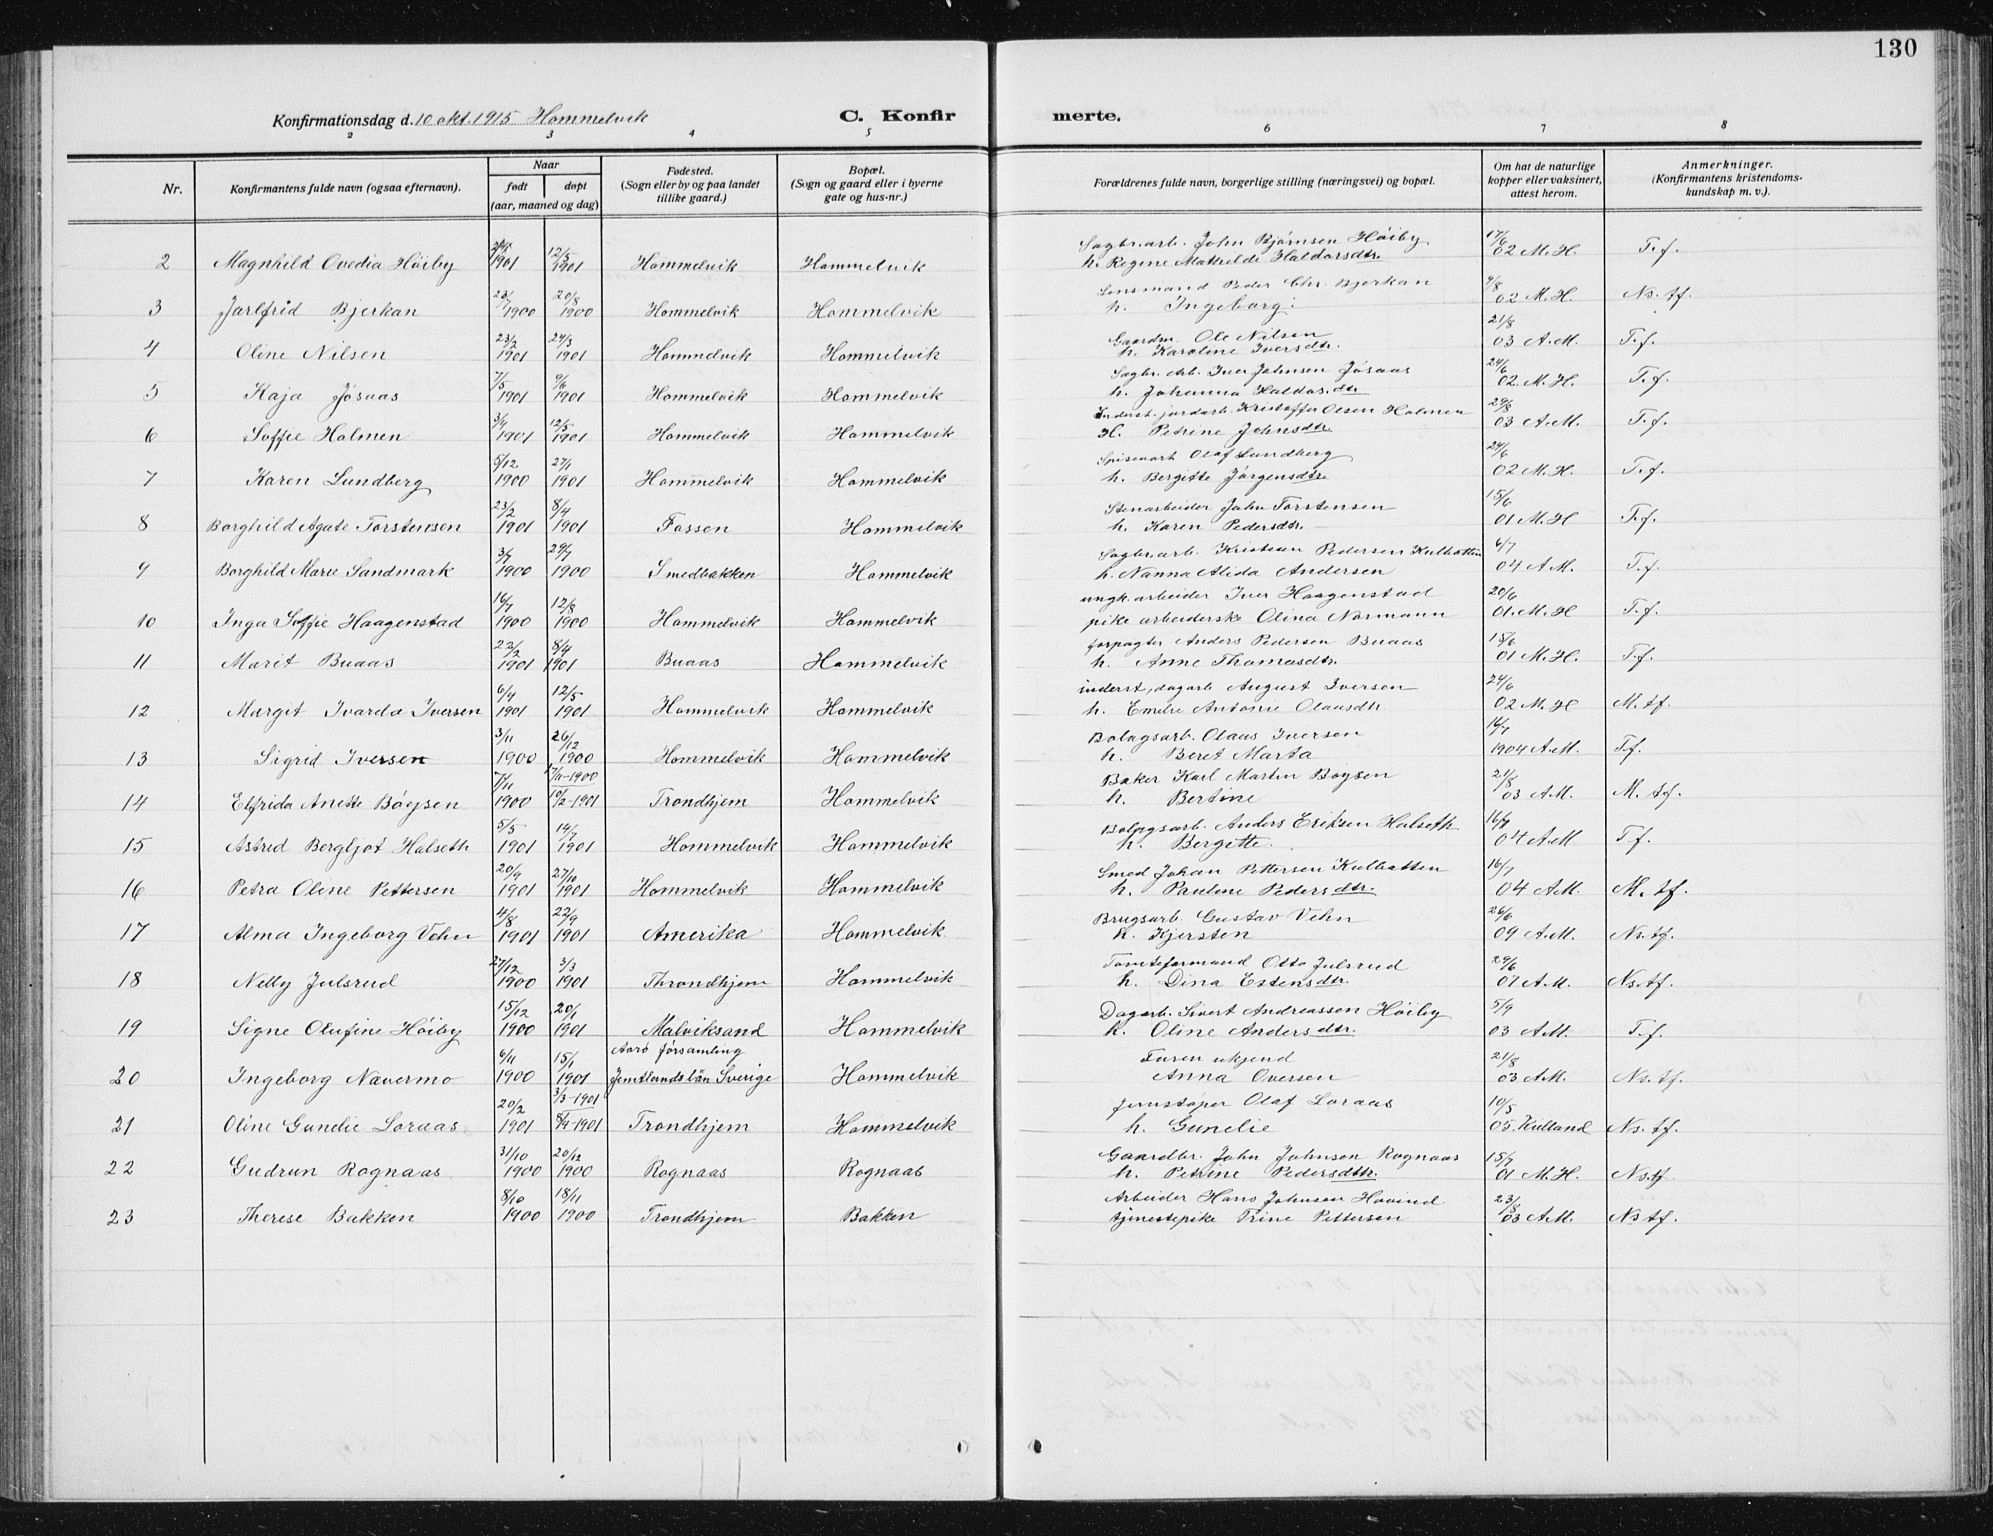 130
Konfirmationsdag d. 10 okt. 1915 Hommelvik C. Konfirmerte.
2 3 4 5 6 7 8
Nr. Konfirmantens fulde navn (ogsaa efternavn). Naar født døpt (aar, maaned og dag) Fødested. (Sogn eller by og paa landet tillike gaard.) Bopæl. (Sogn og gaard eller i byerne gate og hus-nr.) Forældrenes fulde navn, borgerlige stilling (næringsvei) og bopæl. Om hat de naturlige kopper eller vaksinert, attest herom. Anmerkninger. (Konfirmantens kristendomskundskap m. v.).
2 Magnhild Ovedia Høiby 1901 12/5 1901 Hommelvik Hommelvik Sagbr.arb. John Bjørnsen Høiby h. Regine Mathilde Haldorsdtr. 17/6 02 M. H. T.f.
3 Jarlfrid Bjerkan 23/7 1900 20/8 1900 Hommelvik Hommelvik Lensmand Peder Chr. Bjerkan h. Ingeborg 4/8 02 M. H. Ns. tf.
4 Oline Nilsen 23/2 1901 24/3 1901 Hommelvik Hommelvik Gaardm. Ole Nilsen h. Karoline Iversdtr. 21/8 03 A.M. T.f.
5 Kaja Jøsaas 7/5 1901 9/6 1901 Hommelvik Hommelvik Sagbr. Arb. Iver Johnsen Jøsaas h. Johanna Haldorsdtr. 24/6 02 M. H. T.f.
6 Soffie Holmen 3/4 1901 12/5 1901 Hommelvik Hommelvik Inderst. jordarb. Kristoffer Olsen Holmen H. Petrine Johnsdtr. 29/8 03 A.M. T.f.
7 Karen Lundberg 5/12 1900 27/1 1901 Hommelvik Hommelvik Spisevært Olaf Lundberg h. Bergitte Jørgensdtr. 24/6 02 M. H. T.f.
8 Borghild Agate Torstensen 23/2 1901 8/4 1901 Fossen Hommelvik Stenarbeider John Torstensen h. Karen Pedersdtr. 15/6 01 M. H T.f.
9 Borghild Marie Sandmark 3/7 1900 29/7 1900 Smedbakken Hommelvik Sagbr.arb. Kristian Pedersen h. Nanna Alida Andersen 6/7 04 A M. T.f.
10 Inga Soffie Haagenstad 16/7 1900 12/8 1900 Hommelvik Hommelvik ungk. arbeider Iver Haagenstad pike arbeiderske Olina Normann 20/6 01. M. H T.f.
11 Marit Buaas 22/2 1901 8/4 1901 Buaas Hommelvik forpagter Anders Pedersen Buaas h. Anne Thomasdtr. 15/6 01 M. H. T.f.
12 Margit Ivarda Iversen 6/4 1901 12/5 1901 Hommelvik Hommelvik inderst, dagarb. August Iversen h. Emelie Antonie Olausdtr 24/6 02 M. H M. tf.
13 Sigrid Iversen 3/11 1900 26/12 1900 Hommelvik Hommelvik Bolagsarb. Olaus Iversen h. Beret Marta 16/7 1904 A.M. T.f.
14 Elfrida Anette Bøysen 7/11 1900 17/11-1900 10/2-1901 Trondhjem Hommelvik Baker Karl Martin Boysen h. Bertine 21/8 03 A.M. M. tf.
15 Astrid Bergljot Halseth 5/5 1901 14/7 1901 Hommelvik Hommelvik Anders Eriksen Halseth h. Bergitte. 16/7 04 A.M T.f.
16 Petra Oline Pettersen 20/9 1901 27/10 1901 Hommelvik Hommelvik Smed Johan Pettersen Kulbatten h. Pauline Pedersdtr. 16/7 04 A.M. M. tf.
17 Alma Ingeborg Vehn 4/8 1901 22/9 1901 Amerika Hommelvik Brugsarb. Gustav Vehn h. Kjersten 26/6 09 A.M. Ns. tf.
18 Nelly Julsrud 27/12 1900 3/3 1901 Throndhjem Hommelvik Tomteformand Otto Julsrud h. Dina Estensdtr. 29/6 07 A.M. Ns. tf.
19 Signe Olufine Høiby 15/12 1900 20/1 1901 Malviksand Hommelvik Dagarb. Sivert Andreassen Høiby h. Oline Andersdtr. 5/9 03 A.M. T.f.
20 Ingeborg Navermo 6/11 1900 15/1 1901 församling Jemtlandslän Sverige Hommelvik Faren ukjend Anna Oversen 21/8 03 A.M. Ns. tf.
21 Oline Gunelie Loraas 20/2 1901 3/3-1901 8/4-1901 Trondhjem Hommelvik Jernstøper Olaf Loraas h. Gunelie 10/5 05. Kulland Ns. tf.
22 Gudrun Rognaas 31/10 1900 20/12 1900 Rognaas Rognaas Gaardbr. John Johnsen Rognaas h. Petrine Pedersdtr. 15/7 01 M. H. Ns. tf.
23 Therese Bakken 8/10 1900 18/11 1900 Trondhjem Bakken Arbeider Hans Johnsen Hovind tjenestepike Trine Pettersen 23/8 03 A.M. Ns tf.